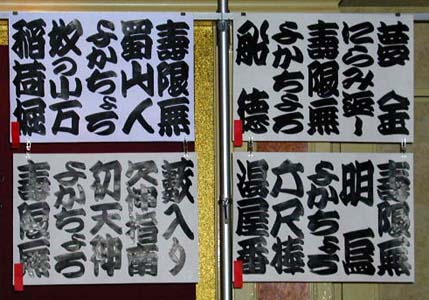 夢金
にらみ返し
壽限無
よかちょろ
船徳
壽限無
明烏
よかちょろ
六尺棒
湯屋番
壽限無
蜀山人
よかちょろ
奴の山万
稲荷堀
藪入り
欠伸指南
初天神
よかちょろ
壽限無